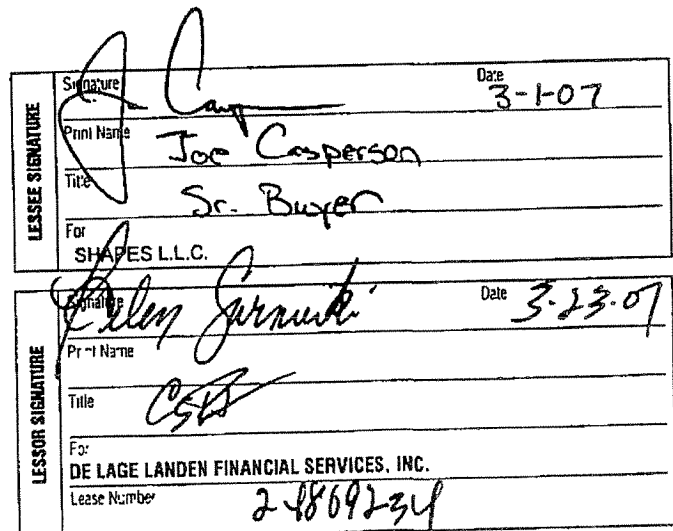 LESSEE SIGNATURE
Signature
Date
3-1-07
Print Name
Joe Casperson
Title
Sr. Buyer
For
SHAPES L.L.C.
LESSOR SIGNATURE
Signature
Date 3-23-07
Print Name
Title
For
DE LAGE LANDEN FINANCIAL SERVICES, INC.
Lease Number
24869234